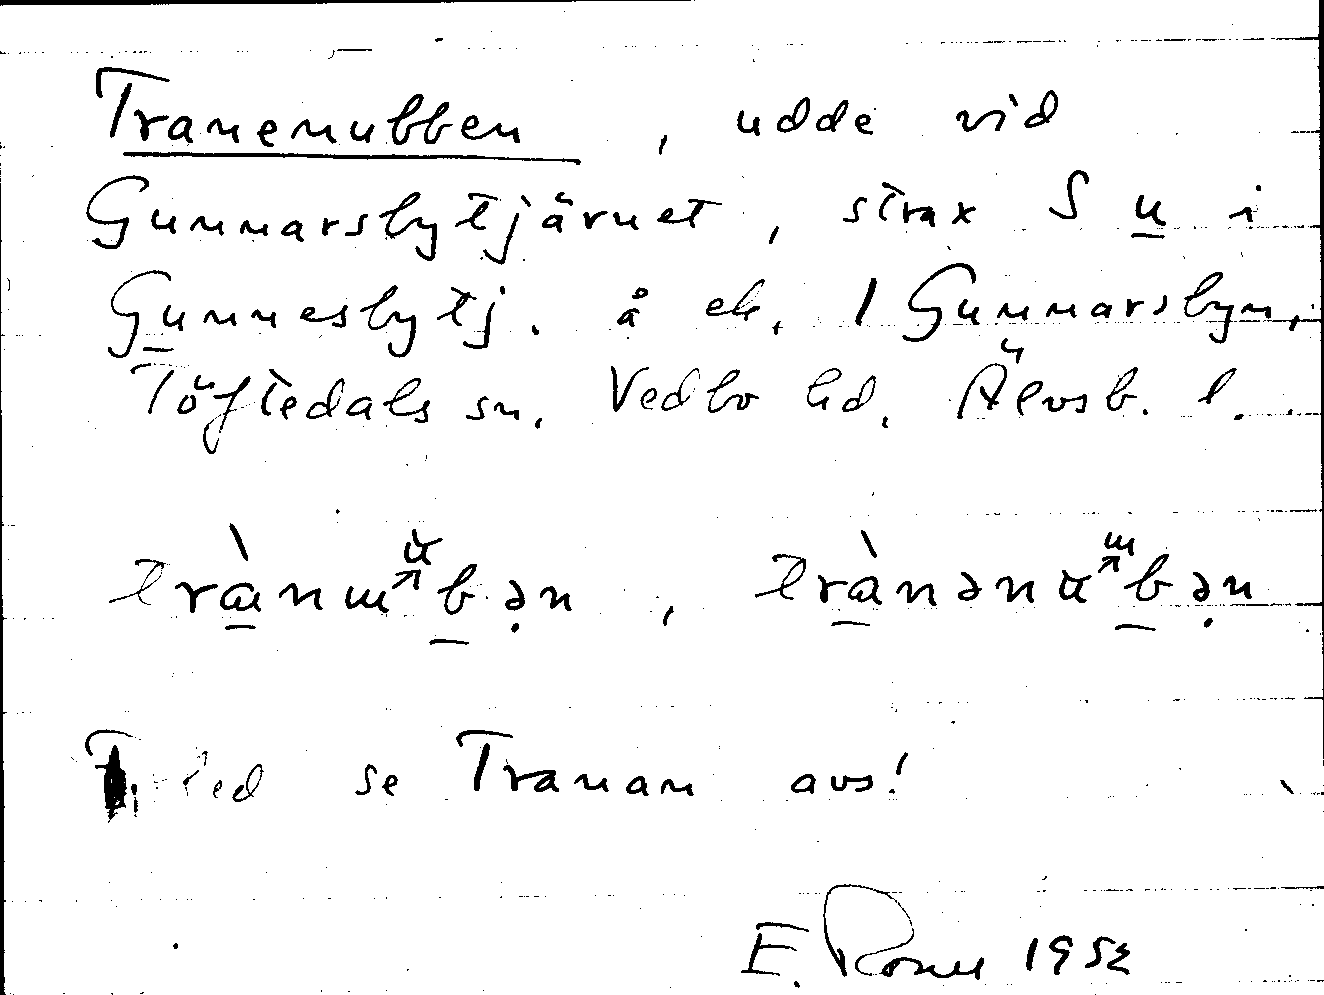 Tranenubben, udde vid
Gunnarsbytjärnet, strax S u i
Gunnesbytj. å ek. 1 Gunnarsbyn,
Töftedals sn. Vedbo hd. Älvsb. l.
T. led se Tranan avs!
E. 1952